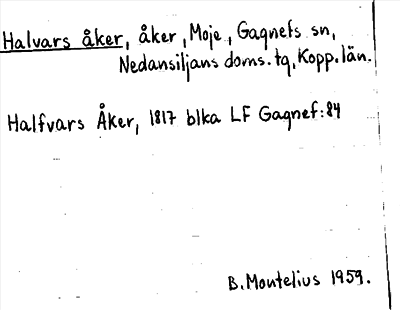 Halvars åker, åker, Moje, Gagnefs sn,
Nedansiljans doms. tg, Kopp. län.
Halfvars Åker, 1817 blka LF Gagnef: 84
B. Montelius 1959.